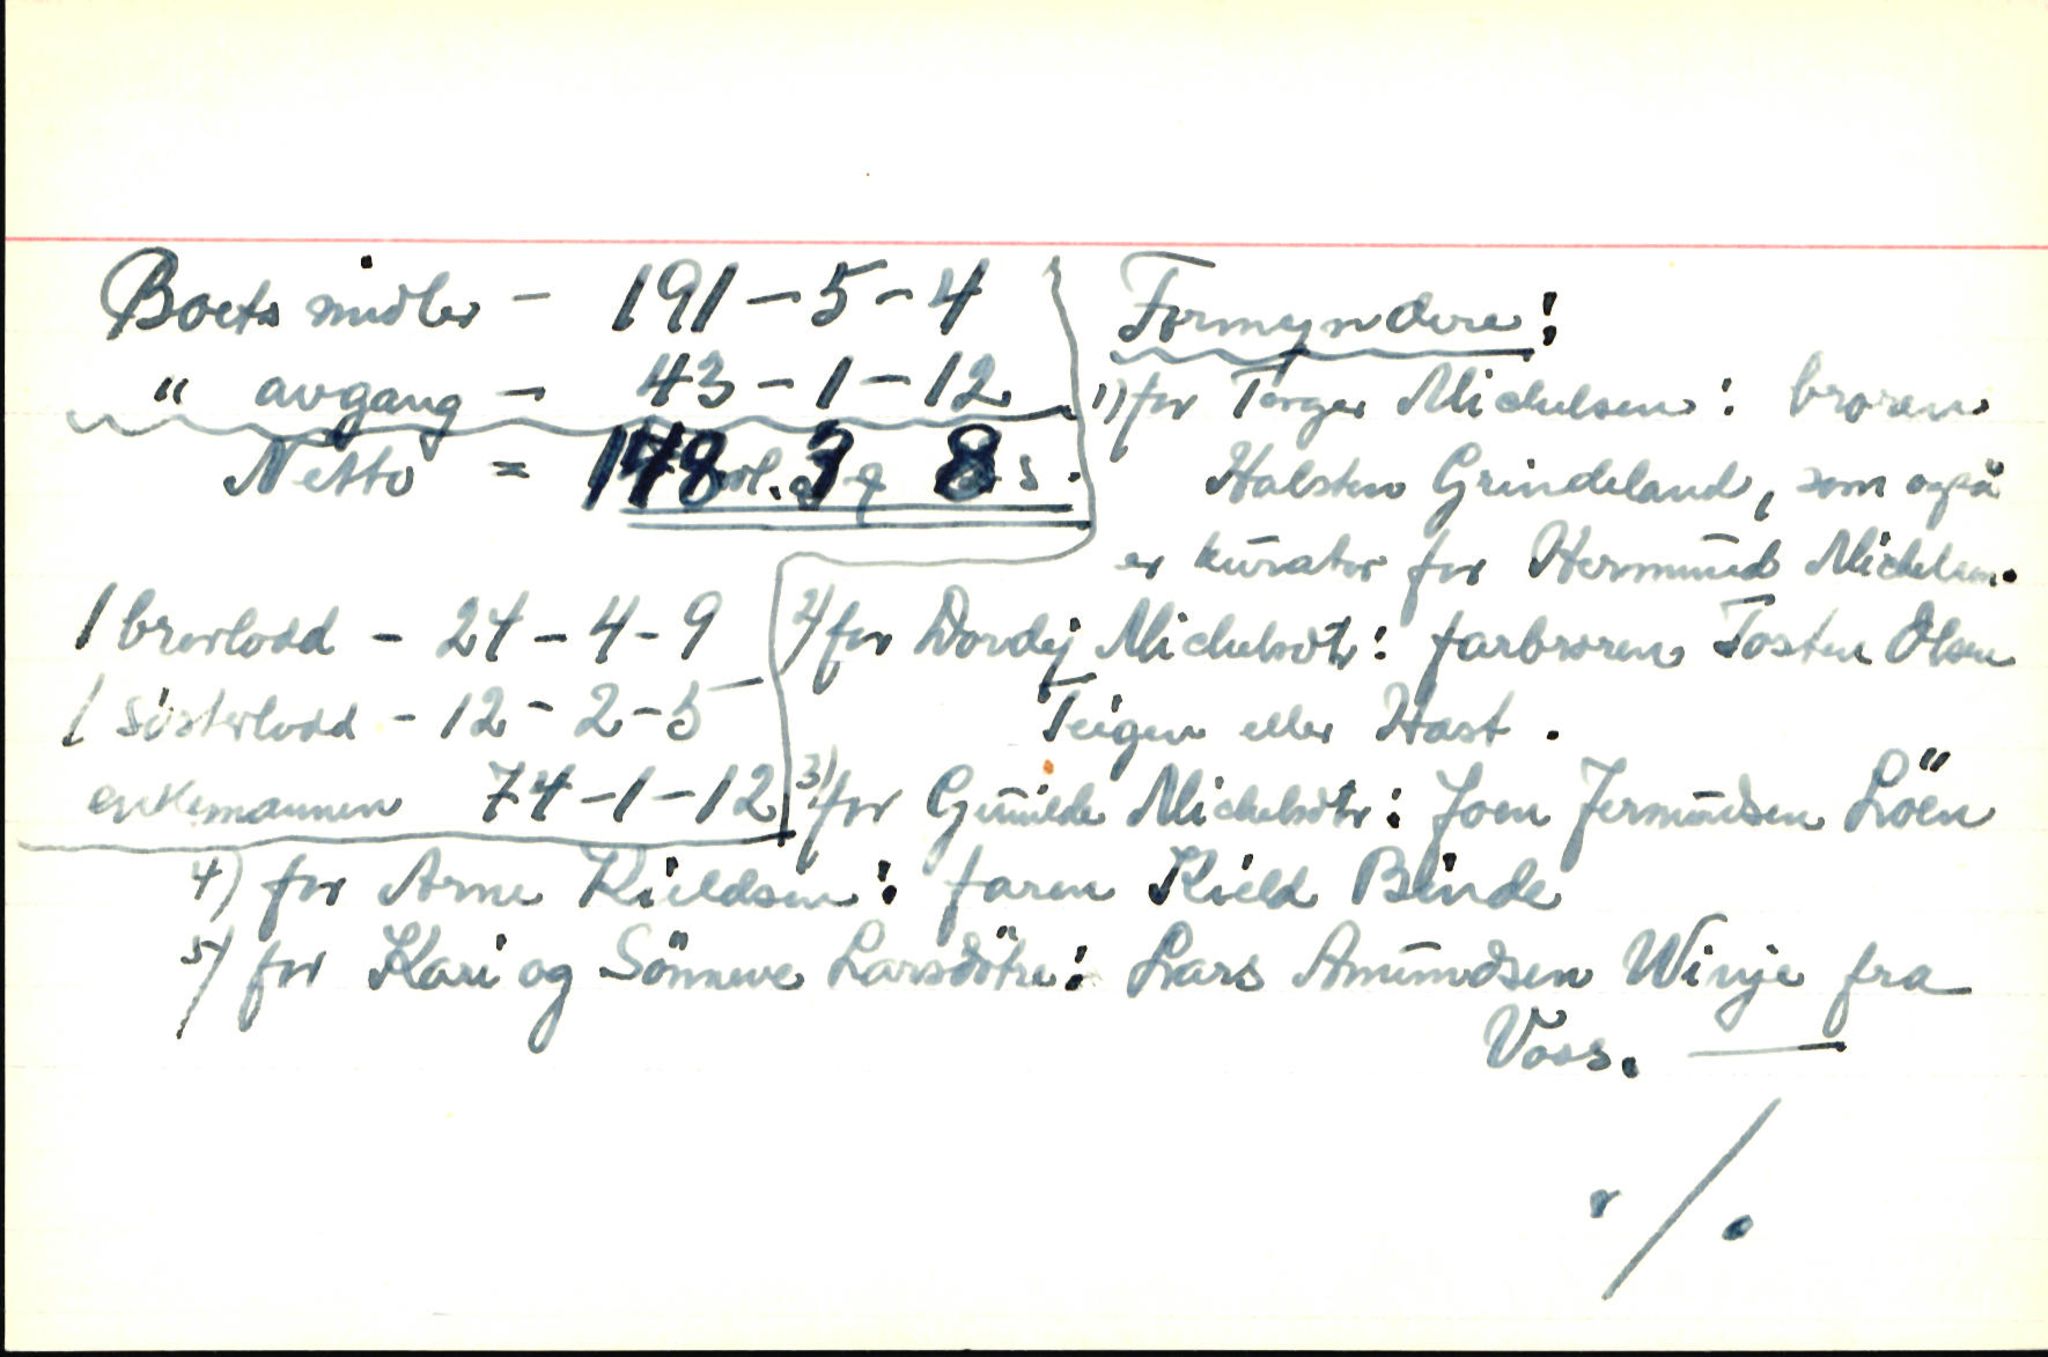 Boets midler - 191-5-4
" avgang - 43-1-12
Netto = 148 rdl. 3 q 8 s.
1 brorlodd - 24-4-9
1 søsterlodd - 12-2-5
enkemannen 74-1-12
Formyndere:
1) for Torger Michelsen: broren
Halsten Grindeland, som også
er kurator for Hermund Michelsen.
2) for Dordej Michelsdtr: farbroren Tosten Olsen
Teigen eller Hast.
3) for Gunilde Michelsdtr: Joen Jermundsen Löen
4) for Arne Kieldsen: faren Kield Binde
5) for Kari og Sönneve Larsdötre: Lars Amundsen Winje fra
Voss. —
./.